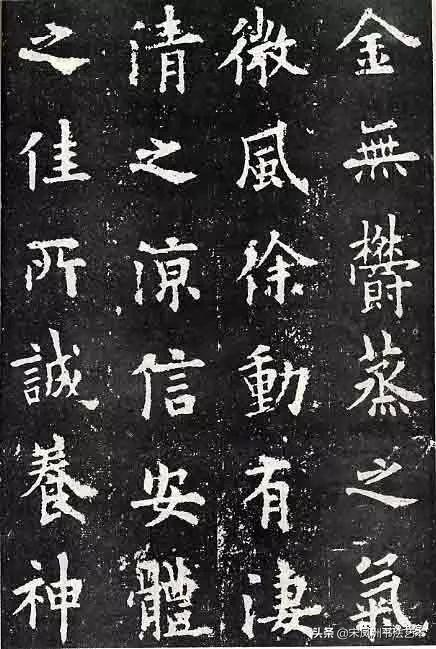 金無欝蒸之氣
微風徐動有淒
清之涼信安體
之佳所誠養神
头条@宋凤州书法艺术